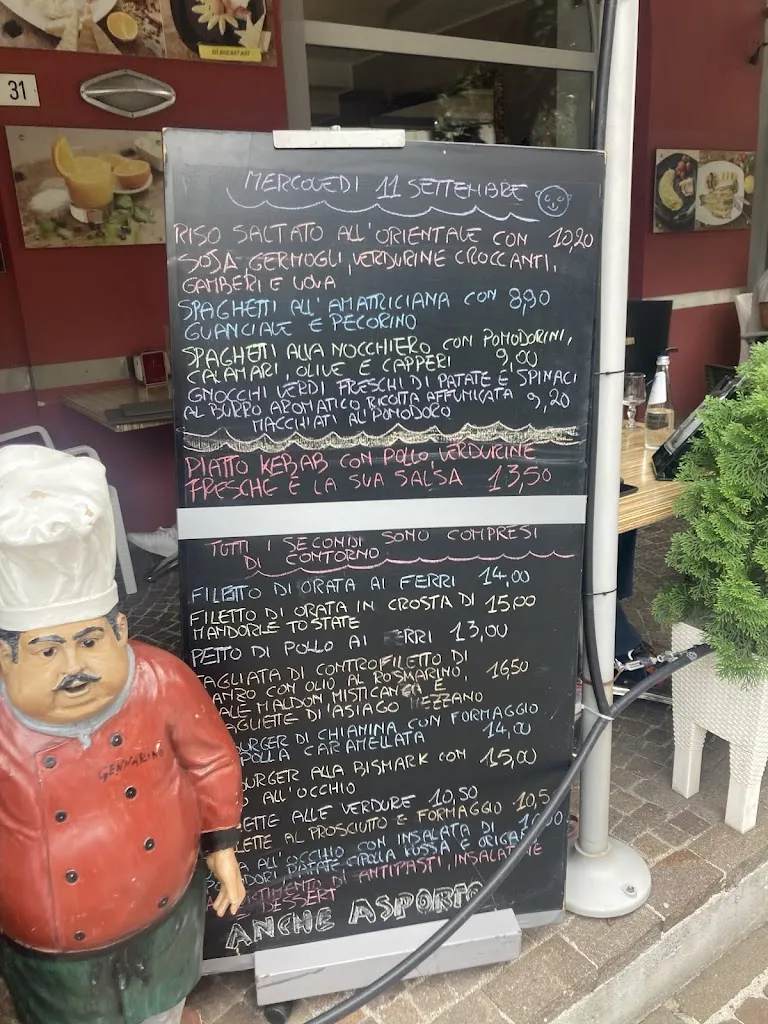 31
MERCOLEDI 11 SETTEMBRE
RISO SALTATO ALL'ORIENTALE CON 10,20
SOJA, GERMOGLI, VERDURINE CROCCANTI,
GAMBERI E UOVA
SPAGHETTI ALL'AMATRICIANA CON 8,90
GUANCIALE E PECORINO
SPAGHETTI ALLA NOCCHIERO CON POMODORINI,
CALAMARI, OLIVE E CAPPERI 9,00
GNOCCHI VERDI FRESCHI DI PATATE E SPINACI
AL BURRO AROMATICO RICOTTA AFFUMICATA 9,20
MACCHIATI AL POMODORO
PIATTO KEBAB CON POLLO, VERDURINE
FRESCHE E LA SUA SALSA 13,50
TUTTI I SECONDI SONO COMPRESI
DI CONTORNO
FILETTO DI ORATA AI FERRI 14,00
FILETTO DI ORATA IN CROSTA DI 15,00
MANDORLE TOSTATE
PETTO DI POLLO AI FERRI 13,00
TAGLIATA DI CONTROFILETTO DI
MANZO CON OLIO AL ROSMARINO, 16,50
SALE MALDON MISTICANZA E
BAGUETTE D'ASIAGO MEZZANO
BURGER DI CHIANINA CON FORMAGGIO
CARAMELLATA 14,00
BURGER ALLA BISMARK CON 15,00
ALL'OCCHIO
ALLE VERDURE 10,50
AL PROSCIUTO E FORMAGGIO 10,5
ALL'OCCHIO CON INSALATA DI
PATATE CIPOLLA ROSSA E
DI ANTIPASTI, INSALATE
E DESSERT
ANCHE ASPORTO
GENNARINO